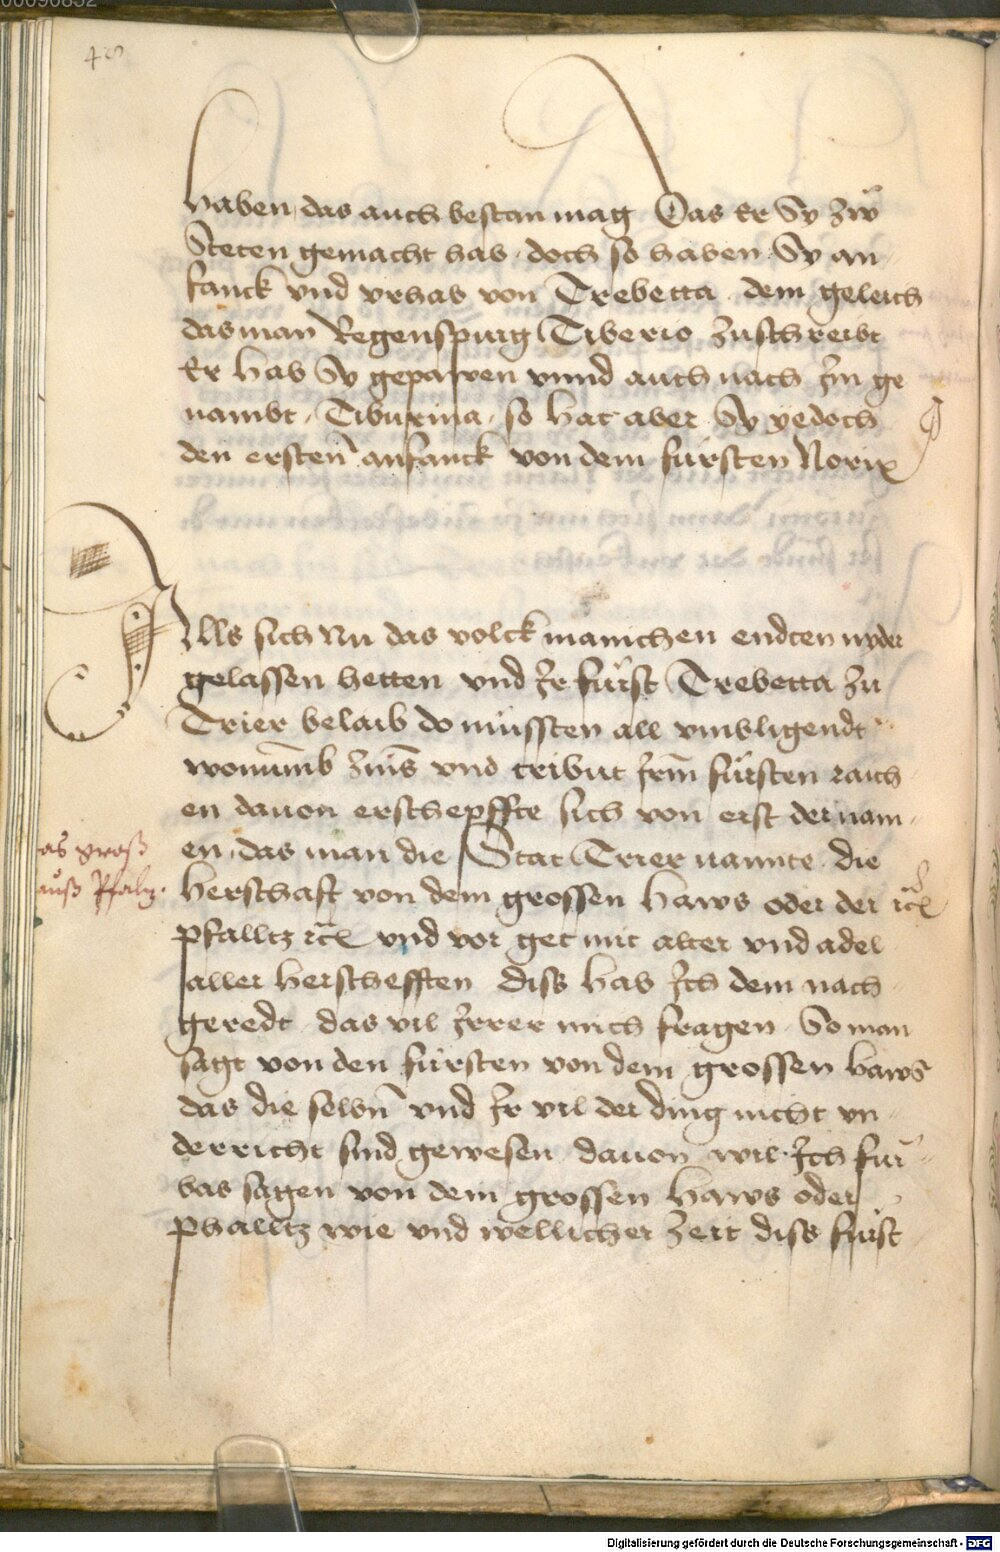 48
haben, das auch bestan mag Das Er Sy zw̃
Steten gemacht hab · doch so haben Sy an
fanck vnd vrhab von Trebetta dem geleich
das man Regenspurg Tiberio zuschreibt
Er hab Sy gepawen vnnd auch nach Im ge
nambt · Tiburina · so hat aber Sy yedoch
den ersten anfanck von dem fürsten Norix
Alls sich Nu das volck manichen endten nyder
gelassen hetten vnd Ir fürst Trebetta zu
Trier belaib do müssten all vmbligendt
wonũmb zinß vnd tribut Irm̃ fürsten raich
en dauon erschepffte sich von erst der nam
en, das man die Stat Trier nannte die
as groß
auß Pfalz.
herschaft von dem grossen Haws oder der
pfalltz vnd vor get mit alter vnd adel
aller herschefften diss hab Ich dem nach
geredt das vil Irrer mich fragen So man
sagt von den fürsten von dem grossen haws
das die selbñ vnd Ir vil der ding nicht vn
derricht sind gewesen dauon wil Ich für
bas sagen von dem grossen Haws oder
phalltz wie vnd wellicher zeit diss fürst
Digitalisierung gefördert durch die Deutsche Forschungsgemeinschaft - DFG